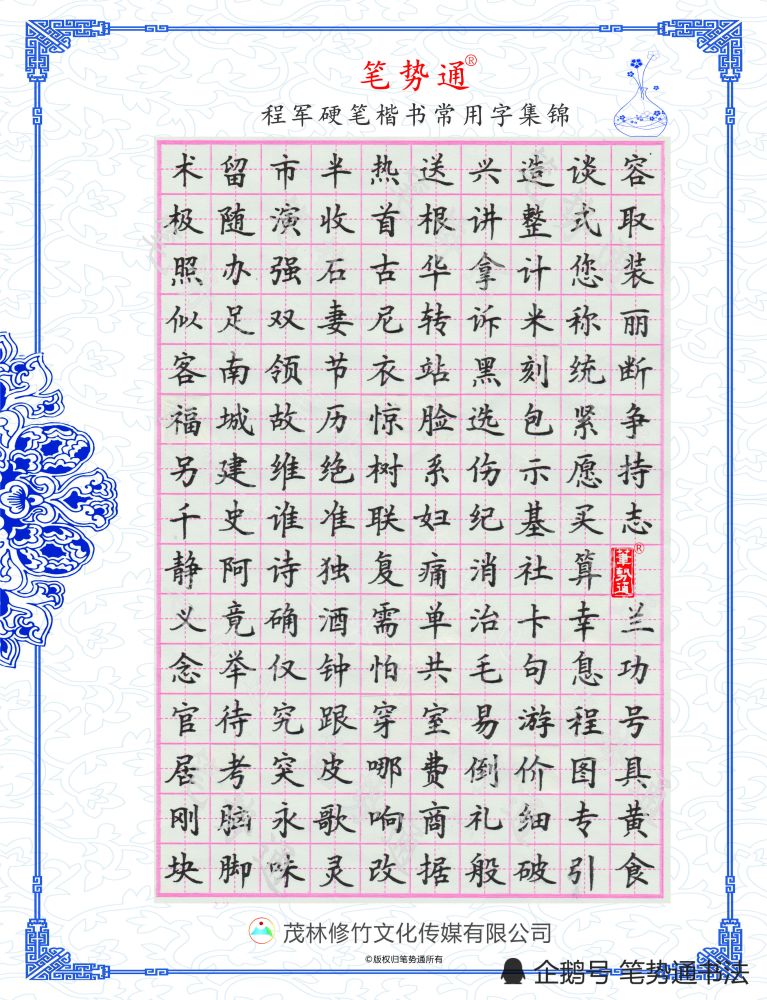 笔势通®
程军硬笔楷书常用字集锦
术留市半热送兴造谈容
极随演收首根讲整式取
照办强石古华拿计您装
似足双妻尼转诉米称丽
客南领节衣站黑刻统断
福城故历惊脸选包紧争
另建维绝树系伤示愿持
千史谁准联妇纪基买志
静阿诗独复痛消社算
筆势通®
义竟确酒需单治卡幸兰
念举仅钟怕共毛句息功
官待究跟穿室易游程号
居考突皮哪费倒价图具
刚脑永歌响商礼细专黄
块脚味灵改据般破引食
茂林修竹文化传媒有限公司
©版权归笔势通所有
企鹅号 笔势通书法